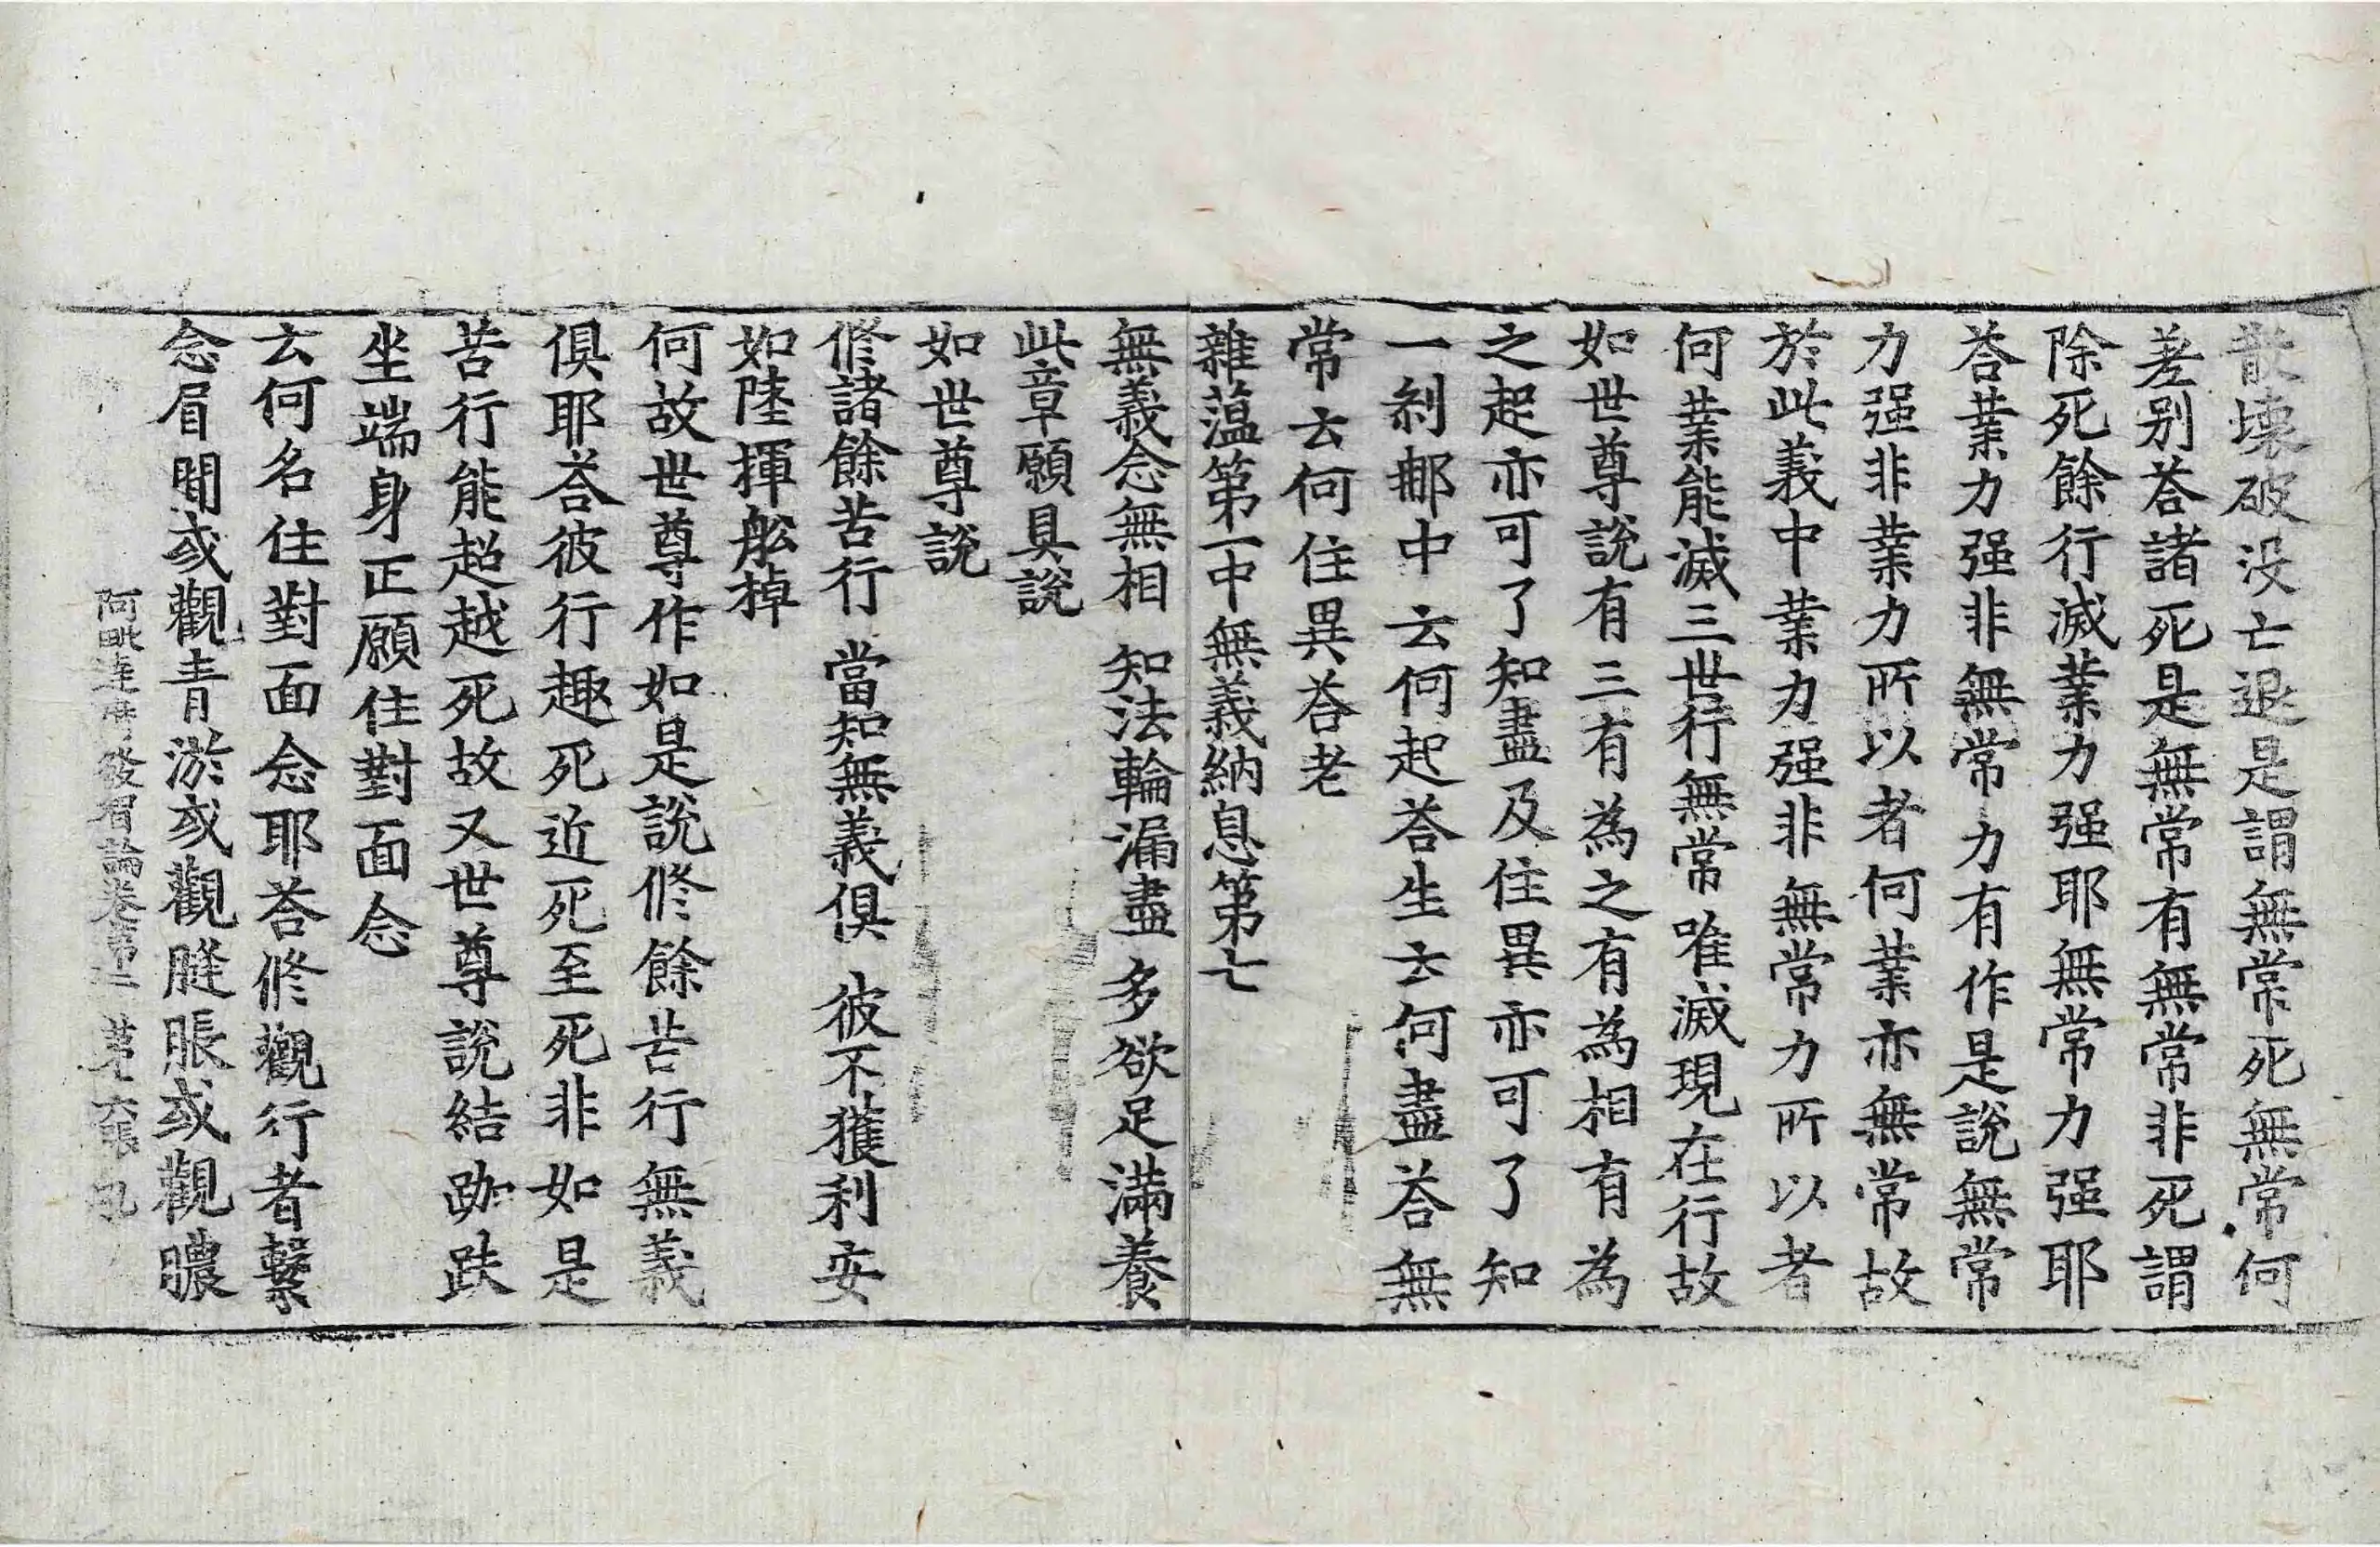 散壞破没亡退是謂無常死無常何
差别荅諸死是無常有無常非死謂
除死餘行滅業力强耶無常力强耶
荅業力强非無常力有作是說無常
力强非業力所以者何業亦無常故
於此義中業力强非無常力所以者
何業能滅三世行無常唯滅現在行故
如世尊說有三有為之有為相有為
之起亦可了知盡及住異亦可了知
一刹那中云何起荅生云何盡荅無
常云何住異荅老
雜薀第一中無義納息第七
無義念無相 知法輪漏盡 多欲足滿養
此章願具說
如世尊說
修諸餘苦行 當知無義俱 彼不獲利安
如陸揮舩棹
何故世尊作如是說修餘苦行無義
俱耶荅彼行趣死近死至死非如是
苦行能超越死故又世尊說結跏趺
坐端身正願住對面念
云何名住對面念耶荅修觀行者繫
念眉間或觀青淤或觀膖脹或觀膿
阿毗達磨發智論卷第二 第六張